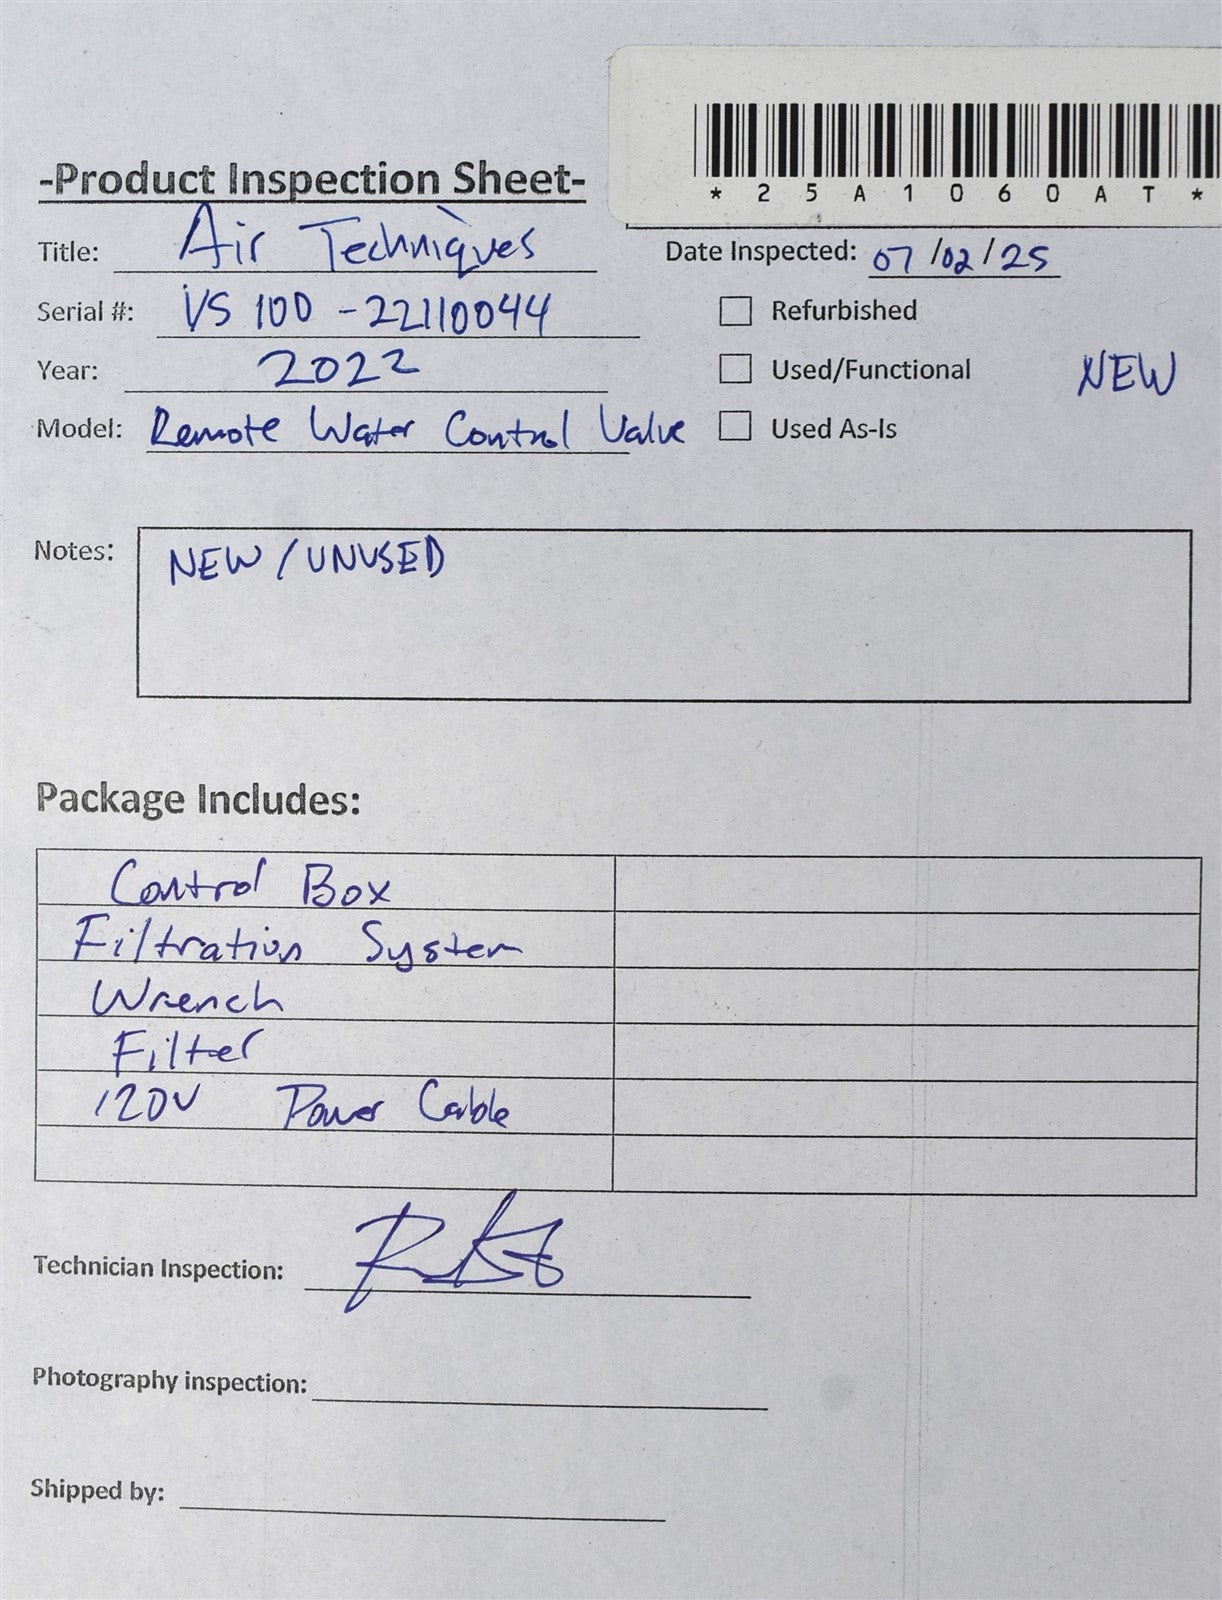 *25A1060AT*
-Product Inspection Sheet-
Title: Air Techniques
Date Inspected: 07/02/25
Serial #: VS 100 -22110044
Refurbished
Year: 2022
Used/Functional NEW
Model: Remote Water Control Valve
Used As-Is
Notes: NEW / UNUSED
Package Includes:
Control Box
Filtration System
Wrench
Filter
120V Power Cable
Technician Inspection:
Photography inspection:
Shipped by: